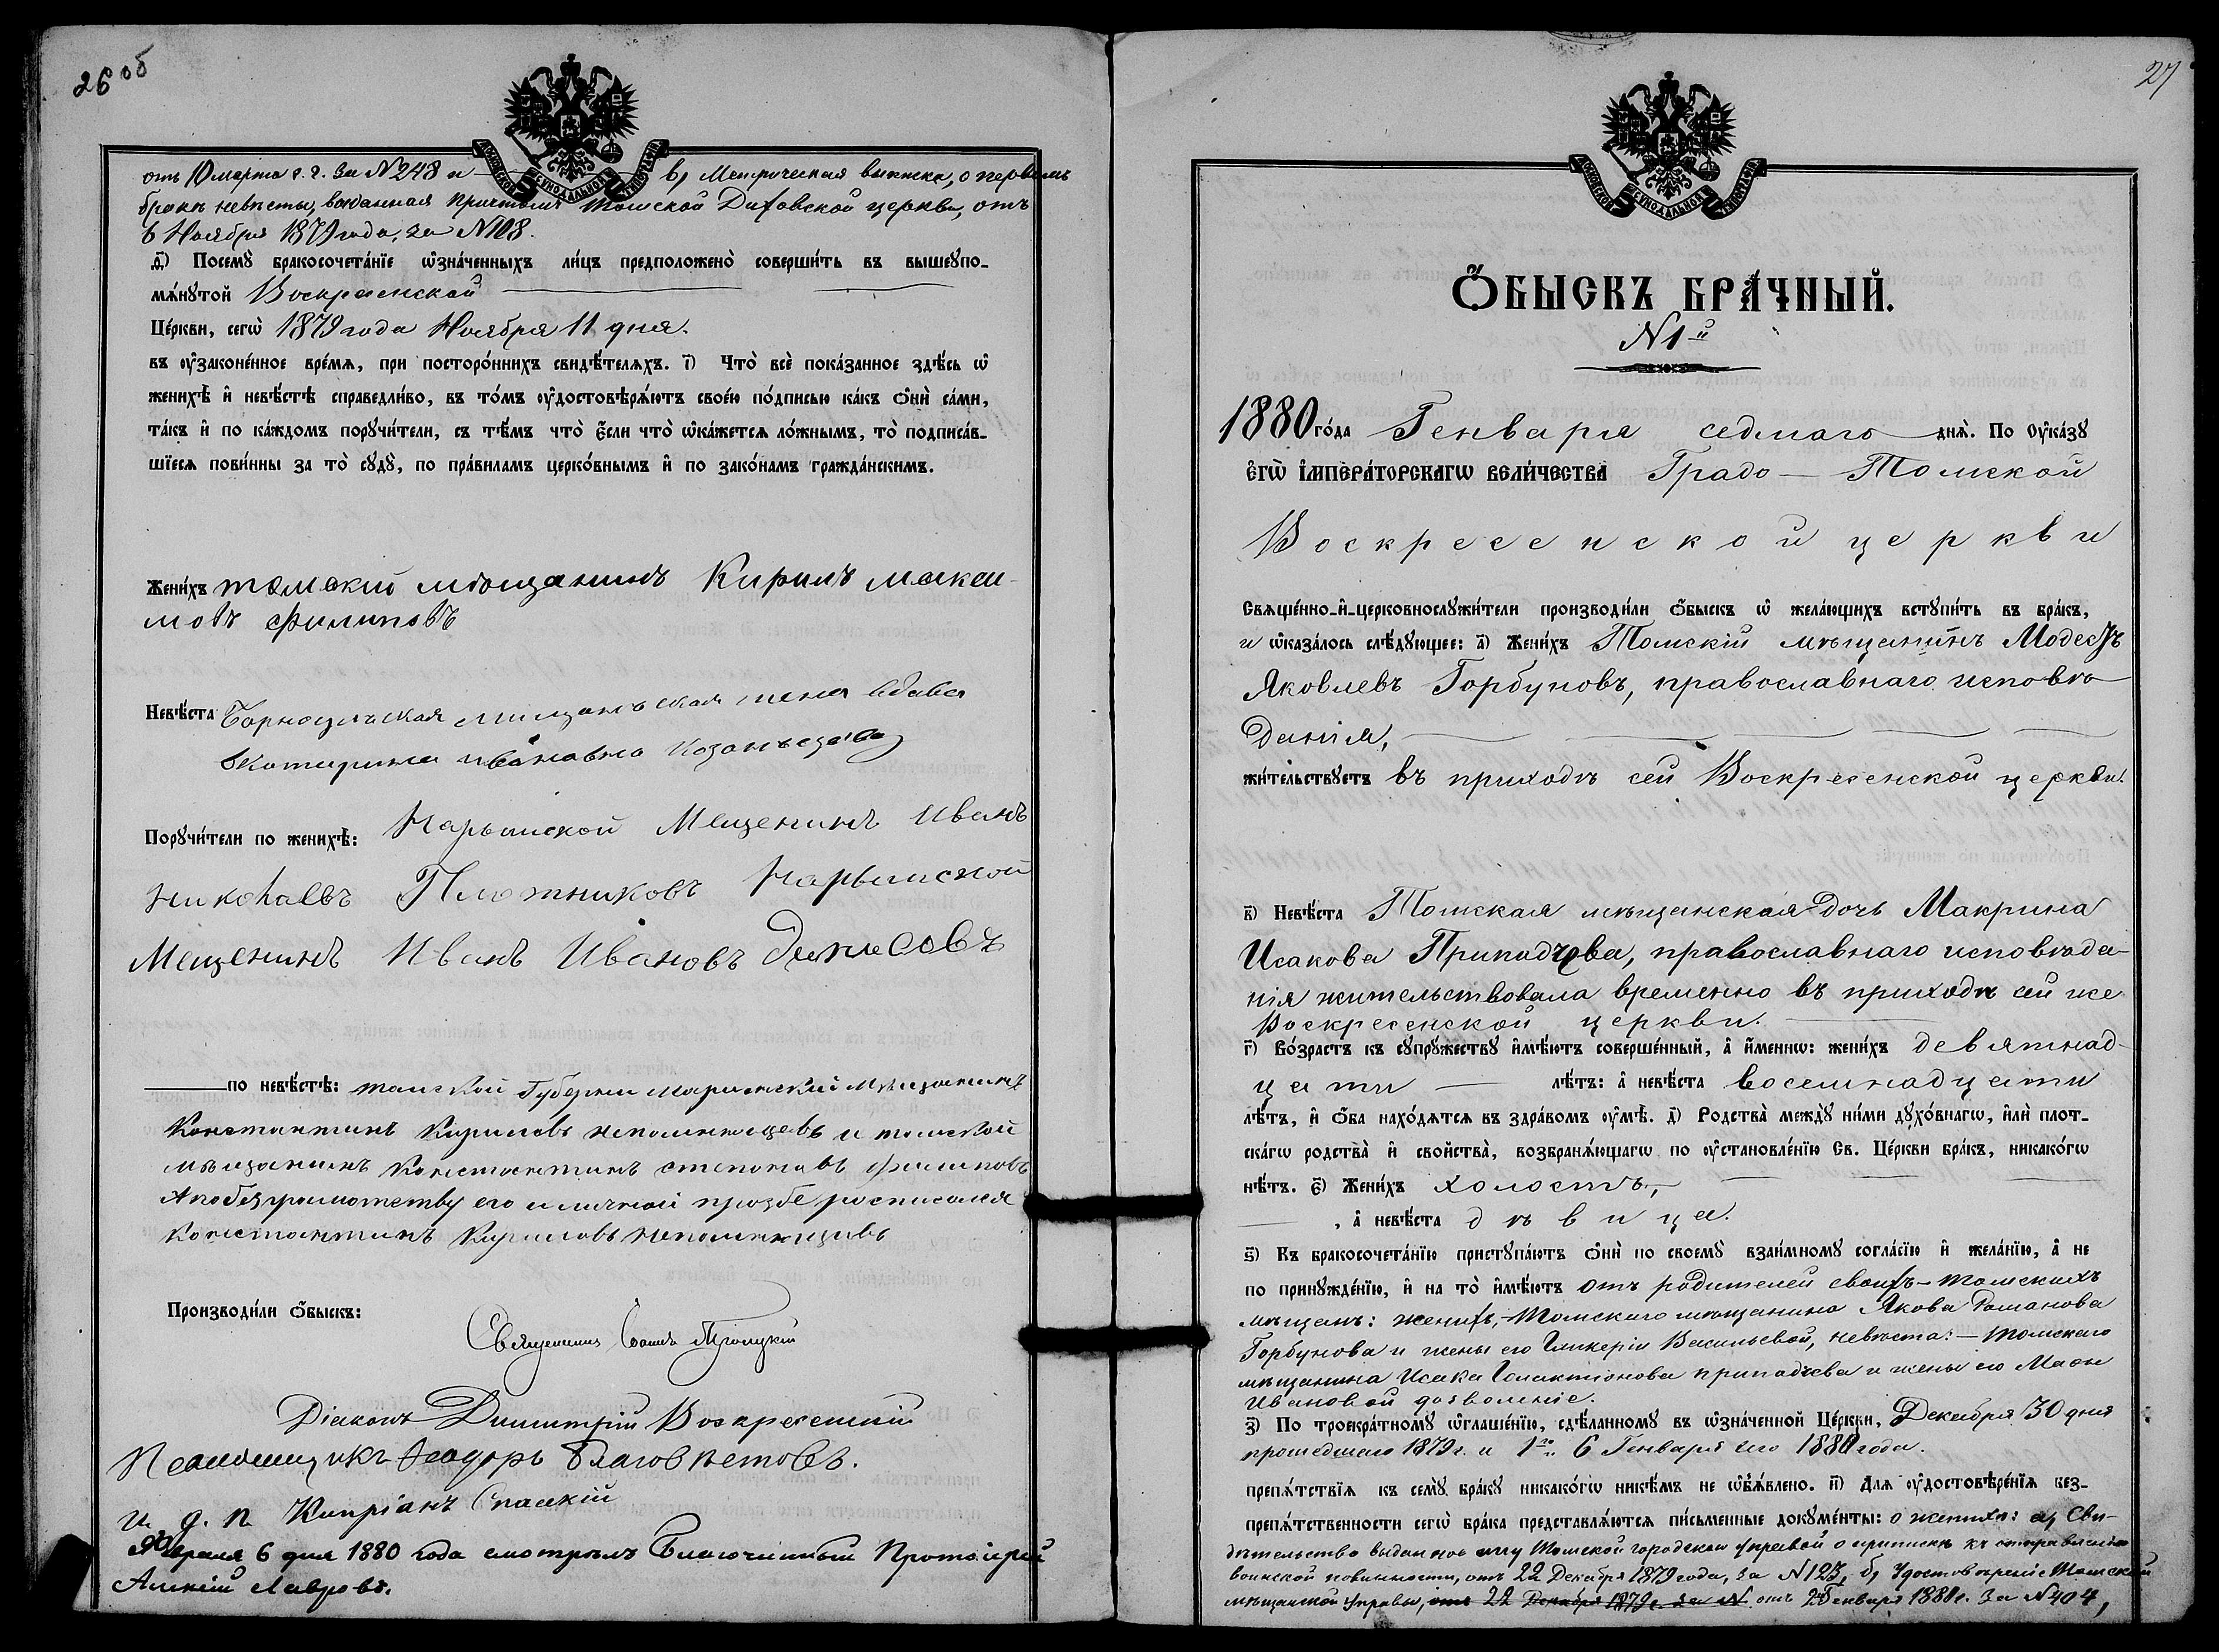 26 об
МОСКОВСКОЙ СѴНОДАЛЬНОЙ ТИПОГРАФІИ
отъ 10 марта с. г. за N 248 и в, Метрическая выписка, о первомъ
бракѣ невѣсты, выданная причтомъ Томской церкви, отъ
6 Ноября 1879 года, за N 108.
д҃і) Посемꙋ̀ бракосочета́нїе ѡ҆зна́ченныхъ ли́цъ предположено̀ соверши́ть въ вышеꙋпо-
мѧ́нꙋтой Воскресенской
Це́ркви, сегѡ̀ 1879 года Ноября 11 дня.
въ ᲂу҆законе́нное вре́мѧ, при посторо́ннихъ свидѣ́телѧхъ. і҃) Что̀ всѐ пока́занное здѣ́сь ѡ҆
женихѣ̀ и҆ невѣ́стѣ справедли́во, въ то́мъ ᲂу҆достовѣрѧ́ютъ свое́ю по́дписью ка́къ ѻ҆нѝ са́ми,
та́къ и҆ по ка́ждомъ порꙋчи́тели, съ тѣ́мъ что̀ є҆́сли что̀ ѡ҆ка́жетсѧ ло́жнымъ, то̀ подписа́в-
шїесѧ пови́нны за то̀ сꙋдꙋ̀, по пра́виламъ церко́внымъ и҆ по зако́намъ гражда́нскимъ.
Жени́хъ томский мѣщанинъ Кирилъ макси-
мовъ филиповъ
Невѣ́ста Борноульская мищанъская жена вдава
Екатирина ивановна Казанъцева
Порꙋчи́тели по женихѣ̀: Нарымской Мещенинъ Иванъ
николаевъ Плотниковъ Нарымской
Мещенинъ Иванъ Ивановъ Денисовъ
по невѣ́стѣ: томской Губерни мариинский мѣщанинъ
Константинъ Кириловъ непомнющевъ и томской
мѣщанинъ Константинъ степановъ филиповъ
А по безграмотству его и личной прозбе росписался
Константинъ Кириловъ непомнющивъ
Производи́ли ѻ҆́быскъ:
Священникъ Іоаннъ Троицкій
Діаконъ Димитрій Воскресенскій
Псаломщикъ Ѳеодоръ Благовѣстовъ.
и. д. п. Кипріанъ Спасскій
Февраля 6 дня 1880 года смотрѣлъ Благочинный Протоіерей
Алексій Лавровъ.
27
МОСКОВСКОЙ СѴНОДАЛЬНОЙ ТИПОГРАФІИ
Ѻ҆́БЫСКЪ БРА́ЧНЫЙ.
N 1й
1880 го́да Генваря седмаго днѧ̀. По Оу҆ка́зꙋ
Є҆ГѠ̀ І҆МПЕРА́ТОРСКАГѠ ВЕЛИ́ЧЕСТВА Градо-Томской
Воскресенской церкви
Свѧще́нно-и҆-церковнослꙋжи́тели производи́ли ѻ҆́быскъ ѡ҆ жела́ющихъ встꙋпи́ть въ бра́къ,
и ѡ҆каза́лось слѣ́дꙋющее: а҃) Жени́хъ Томскій мѣщанинъ Модестъ
Яковлевъ Горбуновъ, православнаго исповѣ-
данія,
жи́тельствꙋетъ въ приходѣ сей Воскресенской церкви.
в҃) Невѣ́ста Томская мѣщанская дочь Макрина
Исакова Припадчева, православнаго исповѣда-
нія жительствовала временно въ приходѣ сей же
Воскресенской церкви.
г҃) Во́зрастъ къ сꙋпрꙋ́жествꙋ и҆мѣ́ютъ соверше́нный, а҆ и҆́меннѡ: жени́хъ девятнад-
цати лѣ́тъ: а҆ невѣ́ста восемнадцати
лѣ́тъ, и҆ ѻ҆́ба нахо́дѧтсѧ въ здра́вомъ ᲂу҆мѣ̀. д҃) Родства̀ междꙋ̀ ни́ми дꙋхо́внагѡ, и҆лѝ плот-
ска́гѡ родства̀ и҆ свойства̀, возбранѧ́ющагѡ по ᲂу҆становле́нїю Св. Це́ркви бра́къ, никако́гѡ
нѣ́тъ. є҃) Жени́хъ холостъ,
, а҆ невѣ́ста дѣвица.
ѕ҃) Къ бракосочета́нїю пристꙋпа́ютъ ѻ҆нѝ по своемꙋ̀ взаи́мномꙋ согла́сїю и҆ жела́нїю, а҆ не
по принꙋжде́нїю, и҆ на то̀ и҆мѣ́ютъ отъ родителей своихъ - томскихъ
мѣщанъ: женихъ, - Томскаго мѣщанина Якова Романова
Горбунова и жены его Гликеріи Васильевой, невѣста: - томскаго
мѣщанина Исака Галактіонова Припадчева и жены его
Ивановой дозволеніе.
з҃) По троекра́тномꙋ ѡ҆глаше́нїю, сдѣ́ланномꙋ въ ѡ҆зна́ченной Це́ркви, Декабря 30 дня
прошедшаго 1879 г. и 1го, 6 Генваря сего 1880 года.
препѧ́тствїѧ къ семꙋ̀ бра́кꙋ никако́гѡ никѣ́мъ не ѡ҆б̾ѧ́влено. и҃) Для ᲂу҆достовѣре́нїѧ без-
препѧ́тственности сегѡ̀ бра́ка представлѧ́ютсѧ пи́сьменные докꙋме́нты: о женихѣ: а, Сви-
дѣтельство выданное ему Томской городской управой о припискѣ къ отправленію
воинской повинности, отъ 22 Декабря 1879 года, за N 123, б, Удостовѣреніе Томской
мѣщанской управы, отъ 22 Декабря 1879 г. за N отъ Генваря 1880 г. за N 404,